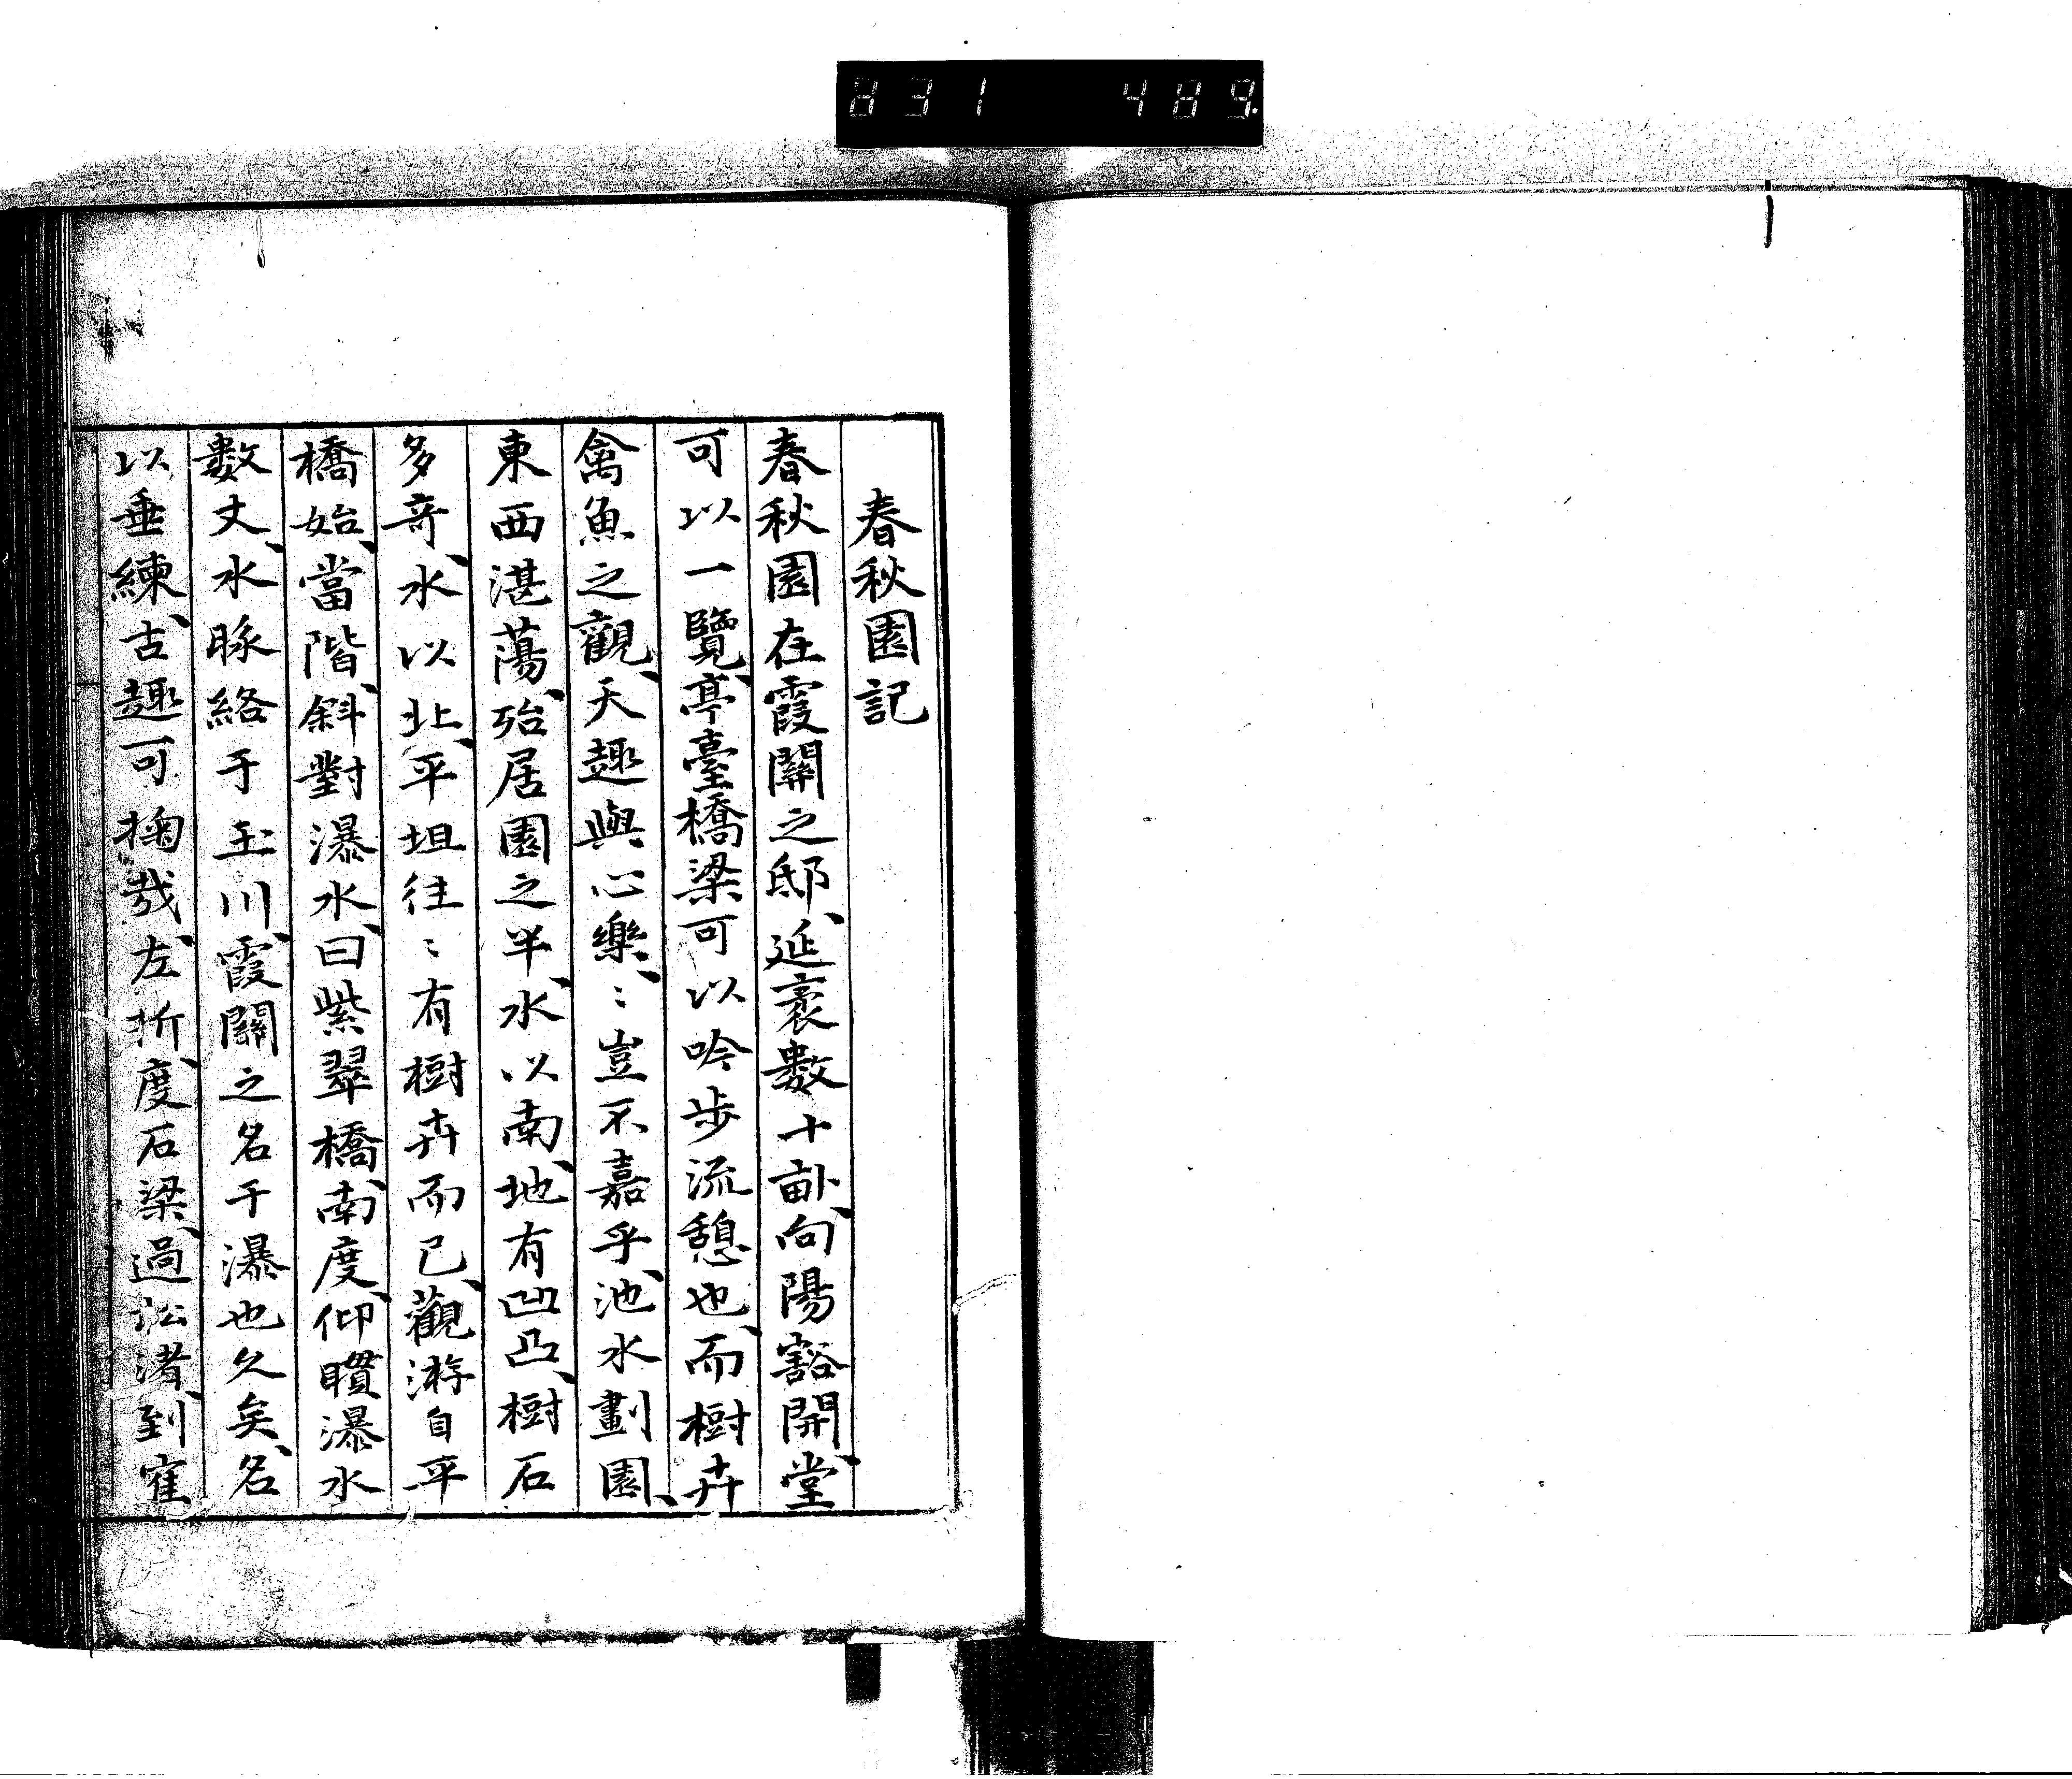 831 489.
春秋園記
春秋園在霞關之邸、延袤數十畝、向陽豁開、堂
可以一覽、亭臺橋梁可以吟步流憩也、而樹卉
禽魚之觀、天趣與心樂、〻豈不嘉乎、池水劃園、
東西湛蕩、殆居園之半、水以南、地有凹凸、樹石
多奇、水以北、平坦往〻有樹卉而已、觀游自平
橋始、當階、斜對瀑水、曰紫翠橋、南度、仰瞩瀑水
數丈、水脉絡于玉川、霞關之名千瀑也久矣、名
以垂練、古趣可掬哉、左折、度石梁、過訟渚、到寉